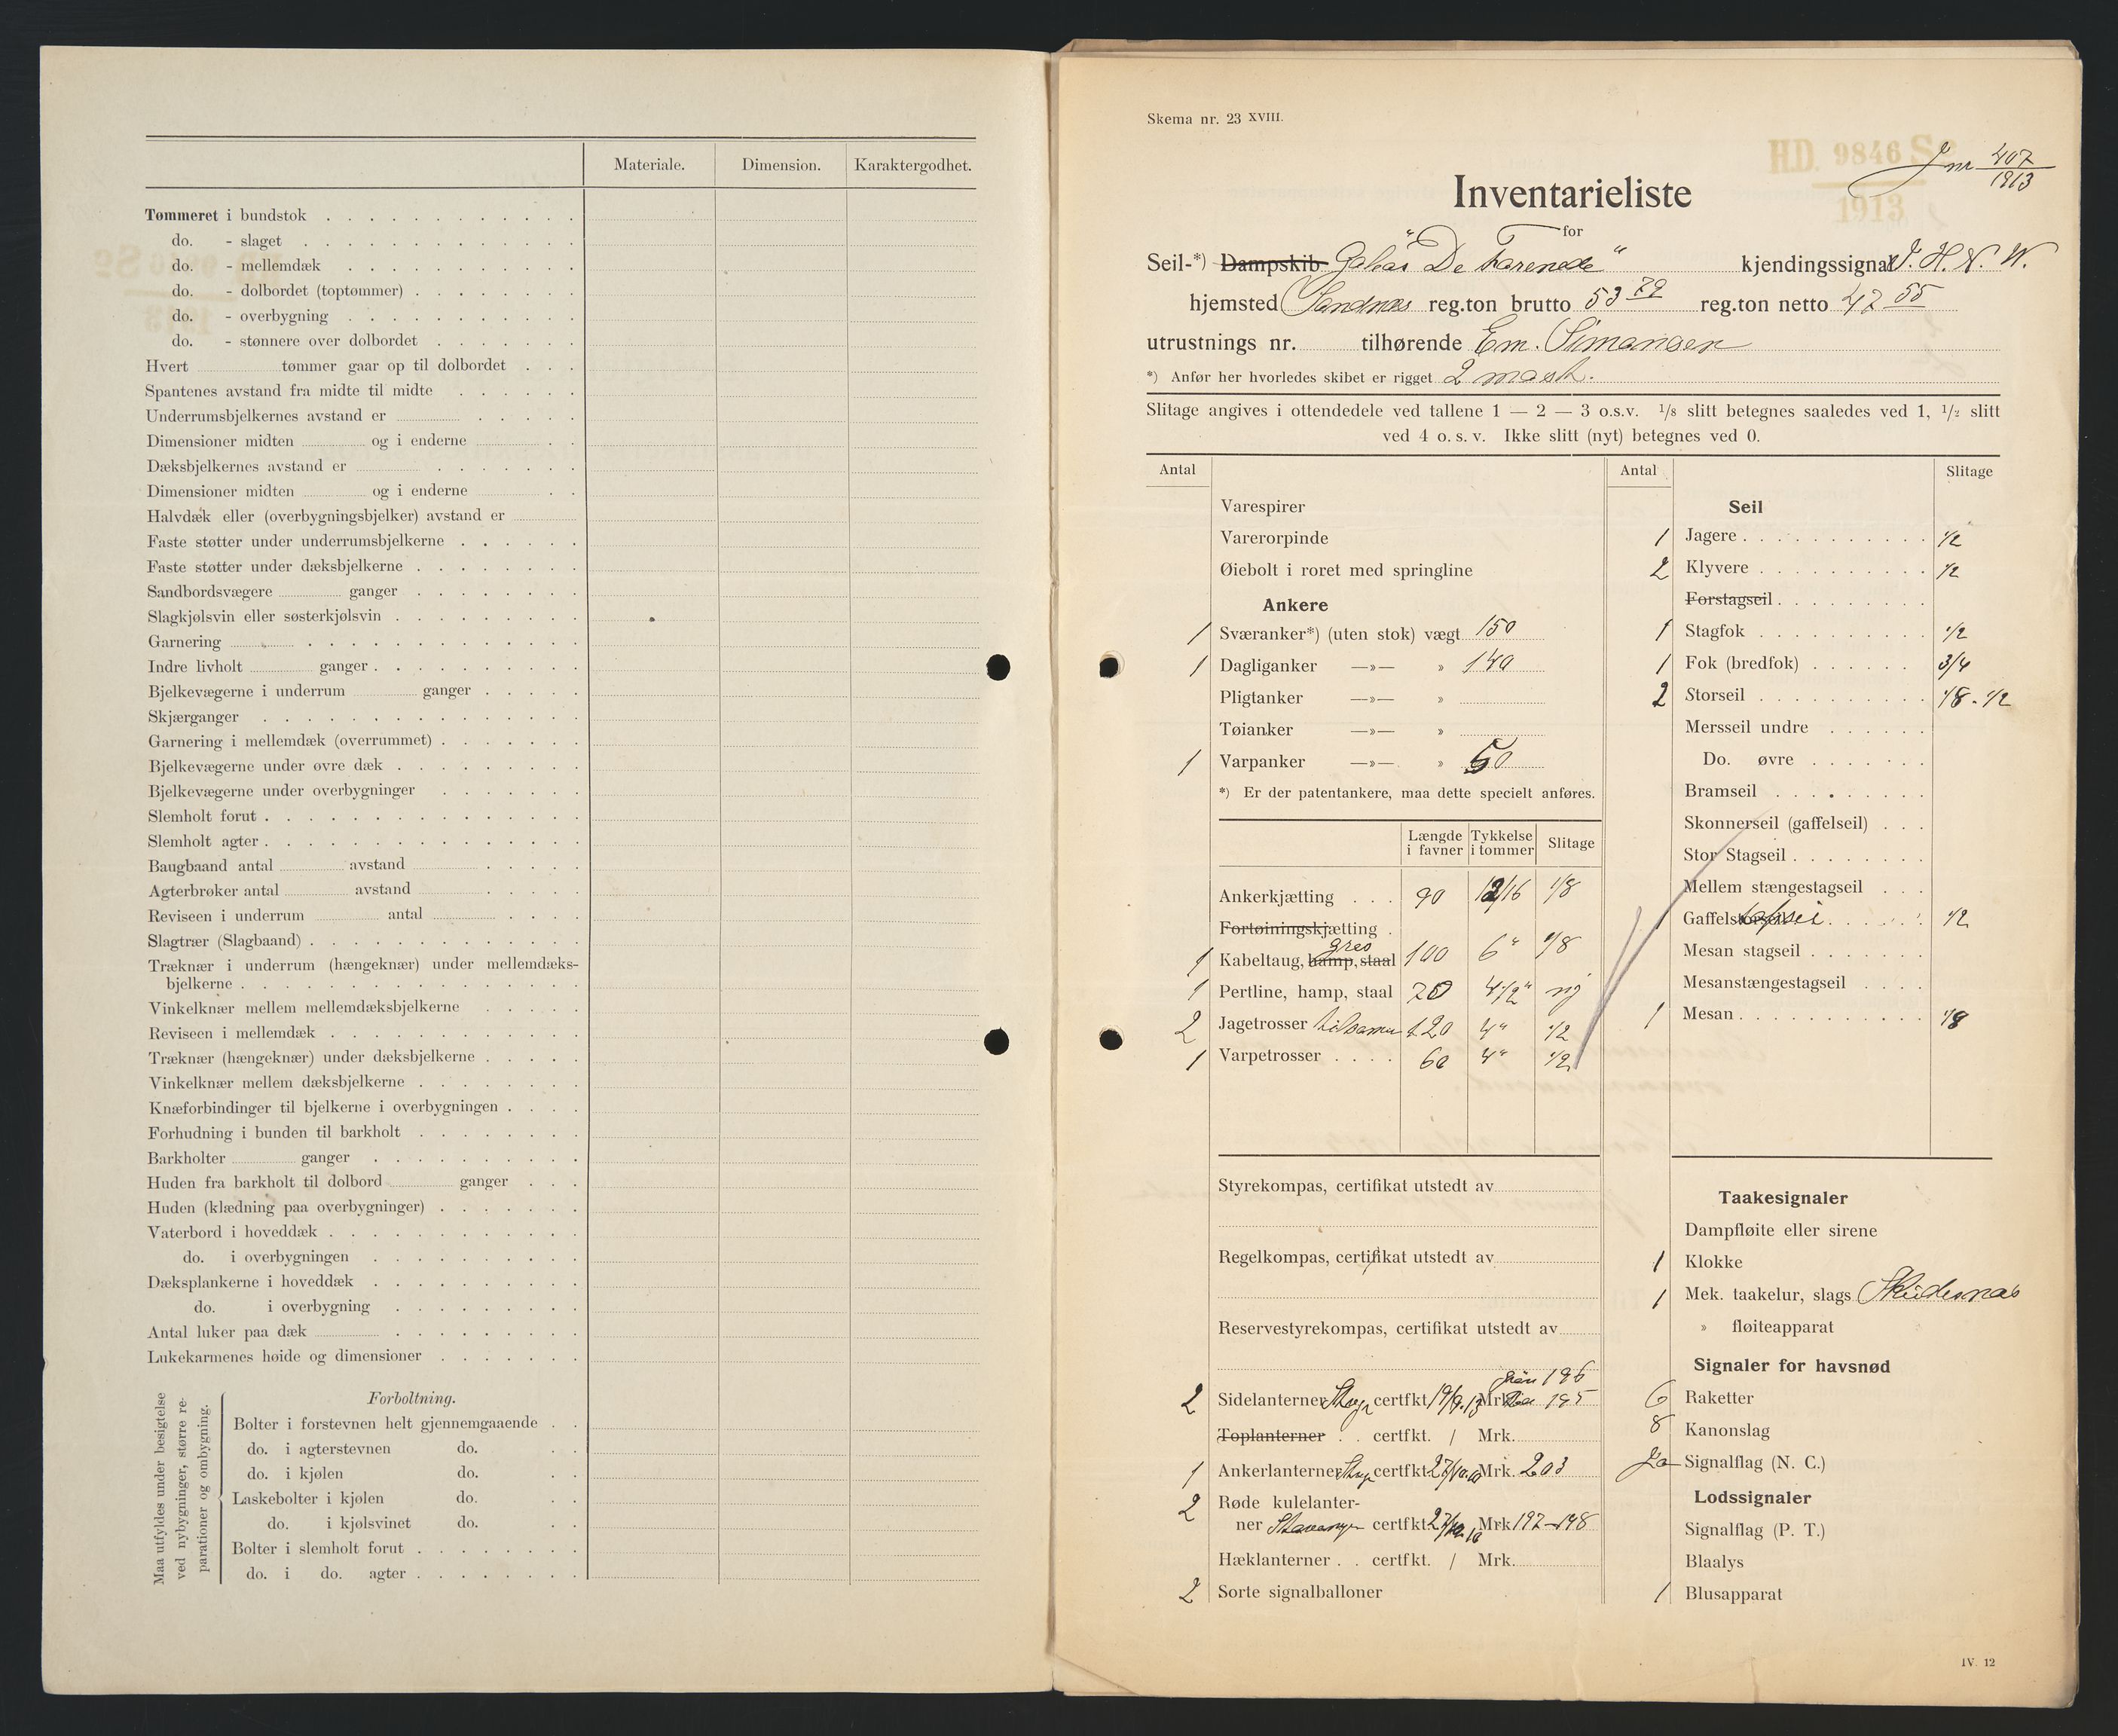 Materiale. Dimension. Karaktergodhet.
Tømmeret i bundstok
do. - slaget
do. - mellemdæk
do. - dolbordet (toptømmer)
do. - overbygning
do. - stønnere over dolbordet
Hvert tømmer gaar op til dolbordet
Spantenes avstand fra midte til midte
Underrumsbjelkernes avstand er
Dimensioner midten og i enderne
Dæksbjelkernes avstand er
Dimensioner midten og i enderne
Halvdæk eller (overbygningsbjelker) avstand er
Faste støtter under underrumsbjelkerne
Faste støtter under dæksbjelkerne
Sandbordsvægere ganger
Slagkjølsvin eller søsterkjølsvin
Garnering
Indre livholt ganger
Bjelkevægerne i underrum ganger
Skjærganger
Garnering i mellemdæk (overrummet)
Bjelkevægerne under øvre dæk
Bjelkevægerne under overbygninger
Slemholt forut
Slemholt agter
Baugbaand antal avstand
Agterbrøker antal avstand
Reviseen i underrum antal
Slagtrær (Slagbaand)
Træknær i underrum (hængeknær) under mellemdæks-
bjelkerne
Vinkelknær mellem mellemdæksbjelkerne
Reviseen i mellemdæk
Træknær (hængeknær) under dæksbjelkerne
Vinkelknær mellem dæksbjelkerne
Knæforbindinger til bjelkerne i overbygningen
Forhudning i bunden til barkholt
Barkholter ganger
Huden fra barkholt til dolbord ganger
Huden (klædning paa overbygninger)
Vaterbord i hoveddæk
do. i overbygningen
Dæksplankerne i hoveddæk
do. i overbygning
Antal luker paa dæk
Lukekarmenes høide og dimensioner
Maa utfyldes under besigtelse
ved nybygninger, større re-
parationer og ombygning.
Forboltning.
Bolter i forstevnen helt gjennemgaaende
do. i agterstevnen do.
do. i kjølen do.
Laskebolter i kjølen do.
do. i kjølsvinet do.
Bolter i slemholt forut
do. i do. agter
Skema nr. 23 XVIII.
H.D. 9846 So
1913
J nr 407/1913
Inventarieliste
for
Seil-*) Dampskib Galeas "De Farende" kjendingssignal J. H. N. W.
hjemsted Sandnæs reg.ton brutto 53 79 reg.ton netto 47 55
utrustnings nr. tilhørende Em. Simonsen
*) Anfør her hvorledes skibet er rigget 2 mast.
Slitage angives i ottendedele ved tallene 1 — 2 — 3 o.s.v. 1/8 slitt betegnes saaledes ved 1, 1/2 slitt
ved 4 o. s. v. Ikke slitt (nyt) betegnes ved 0.
Antal
Varespirer
Varerorpinde
Øiebolt i roret med springline
Ankere
1 Sværanker*) (uten stok) vægt 150
1 Dagliganker —»— » 140
Pligtanker —»— »
Tøianker —»— »
1 Varpanker —»— » 50
*) Er der patentankere, maa dette specielt anføres.
Længde i favner Tykkelse i tommer Slitage
Ankerkjætting 90 12/16 1/8
Fortøiningskjætting
1 Kabeltaug, hamp, staal gres 100 6" 1/8
1 Pertline, hamp, staal 70 4 1/2" ny
2 Jagetrosser tilsamen 120 4" 1/2
1 Varpetrosser 60 4" 1/2
Styrekompas, certifikat utstedt av
Regelkompas, certifikat utstedt av
Reservestyrekompas, certifikat utstedt av
2 Sidelanterner Stvgr certfkt 19/9.13 Mrk. 195 196
Toplanterner certfkt. / Mrk.
1 Ankerlanterne Stvgr certfkt 27/10.10 Mrk. 203
2 Røde kulelanter-
ner Stavanger certfkt 27/10.10 Mrk 197-198
Hæklanterner certfkt. / Mrk.
2 Sorte signalballoner
Antal Slitage
Seil
1 Jagere 1/2
2 Klyvere 1/2
Forstagseil
1 Stagfok 1/2
1 Fok (bredfok) 3/4
2 Storseil 1/8 - 1/2
Mersseil undre
Do. øvre
Bramseil
Skonnerseil (gaffelseil)
Stor Stagseil
Mellem stængestagseil
1 Gaffel 1/2
Mesan stagseil
Mesanstængestagseil
1 Mesan 1/8
Taakesignaler
Dampfløite eller sirene
1 Klokke
1 Mek. taakelur, slags Skudesnæs
» fløiteapparat
Signaler for havsnød
6 Raketter
8 Kanonslag
Ja Signalflag (N. C.)
Lodssignaler
Signalflag (P. T.)
Blaalys
1 Blusapparat
IV. 12